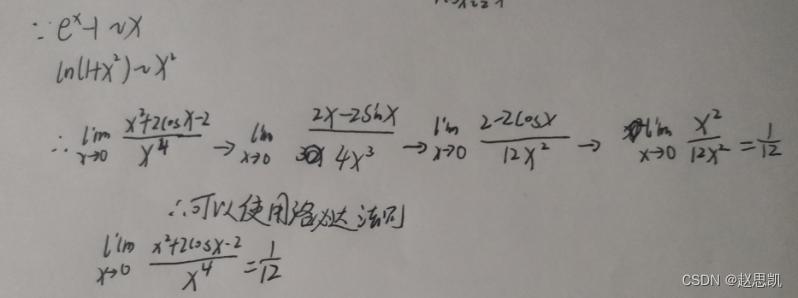 ∵ e^x-1 ~ x
ln(1+x²) ~ x²
∴ lim x→0 (x²+2cosx-2)/x⁴ → lim x→0 (2x-2sinx)/4x³ → lim x→0 (2-2cosx)/12x² → lim x→0 x²/12x² = 1/12
∴可以使用洛必达法则
lim x→0 (x²+2cosx-2)/x⁴ = 1/12
CSDN @赵思凯